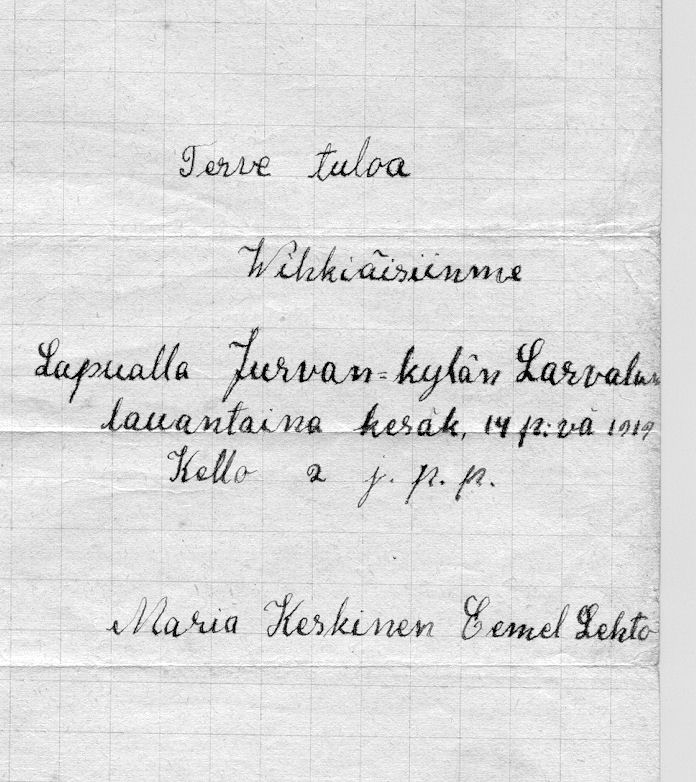 Terve tuloa
Wihkiäisiinme
Lapualla Jurvan=kylän
lauantaina kesäk, 14 p:vä 1919
Kello 2 j. p. p.
Maria Keskinen Eemel Lehto